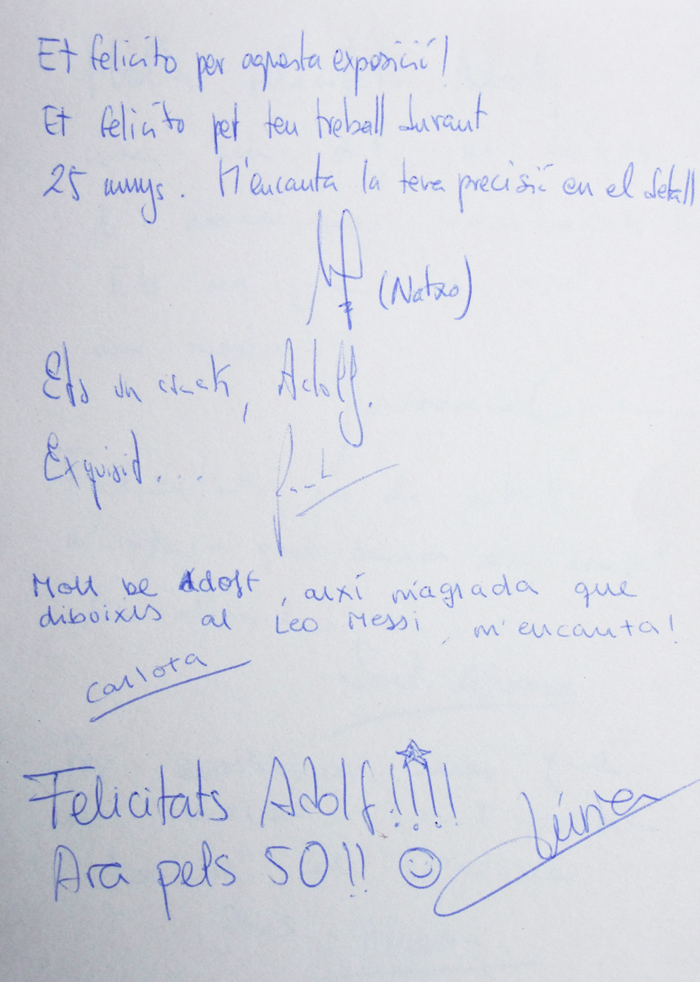 Et felicito per aquesta exposició!
Et felicito pel teu treball durant
25 anys. M'encanta la teva precisió en el detall
(Natxo)
Ets un crack, Adolf.
Exquisid...
Molt be Adolf, aixi m'agrada que
diboixis al Leo Messi, m'encanta!
Carlota
Felicitats Adolf!!!!
Ara pels 50!! ☺